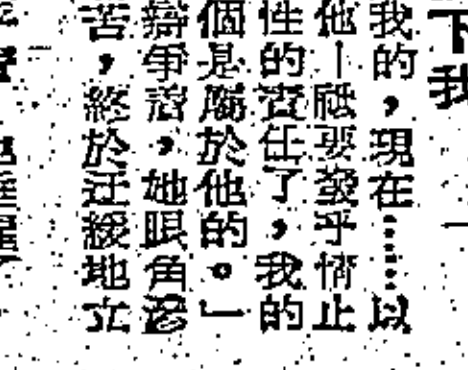 下我
我的，現在……以
他—祗要發乎情止
性的責任了，我的
個是屬於他的。」
爭著，她眼角
苦，終於迂緩地立